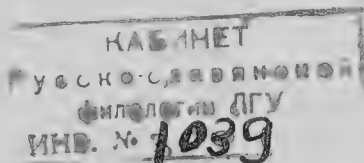 КАБИНЕТ
Русско-славянской
филологии ЛГУ
ИНВ. № 1039